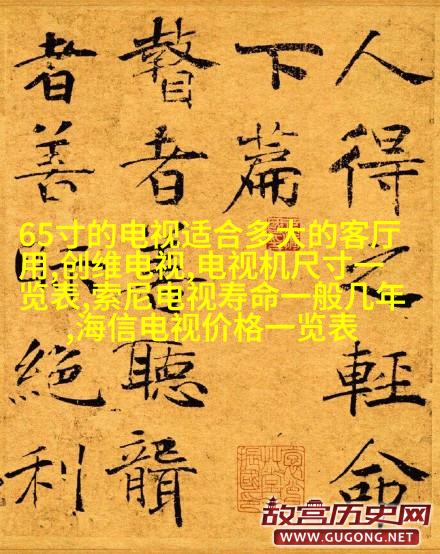 人得之輕命
下篇
瞽者聽聾
者善絕利
65寸的电视适合多大的客厅
用,创维电视,电视机尺寸一
览表,索尼电视寿命一般几年
,海信电视价格一览表
故宫历史网
WWW.GUGONG.NET